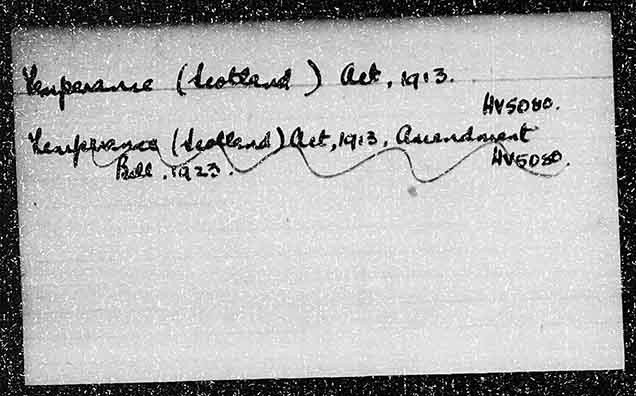 Temperance (Scotland) Act, 1913.
HV5080.
Temperance (Scotland) Act, 1913, Amendment
Bill, 1923. HV5080.